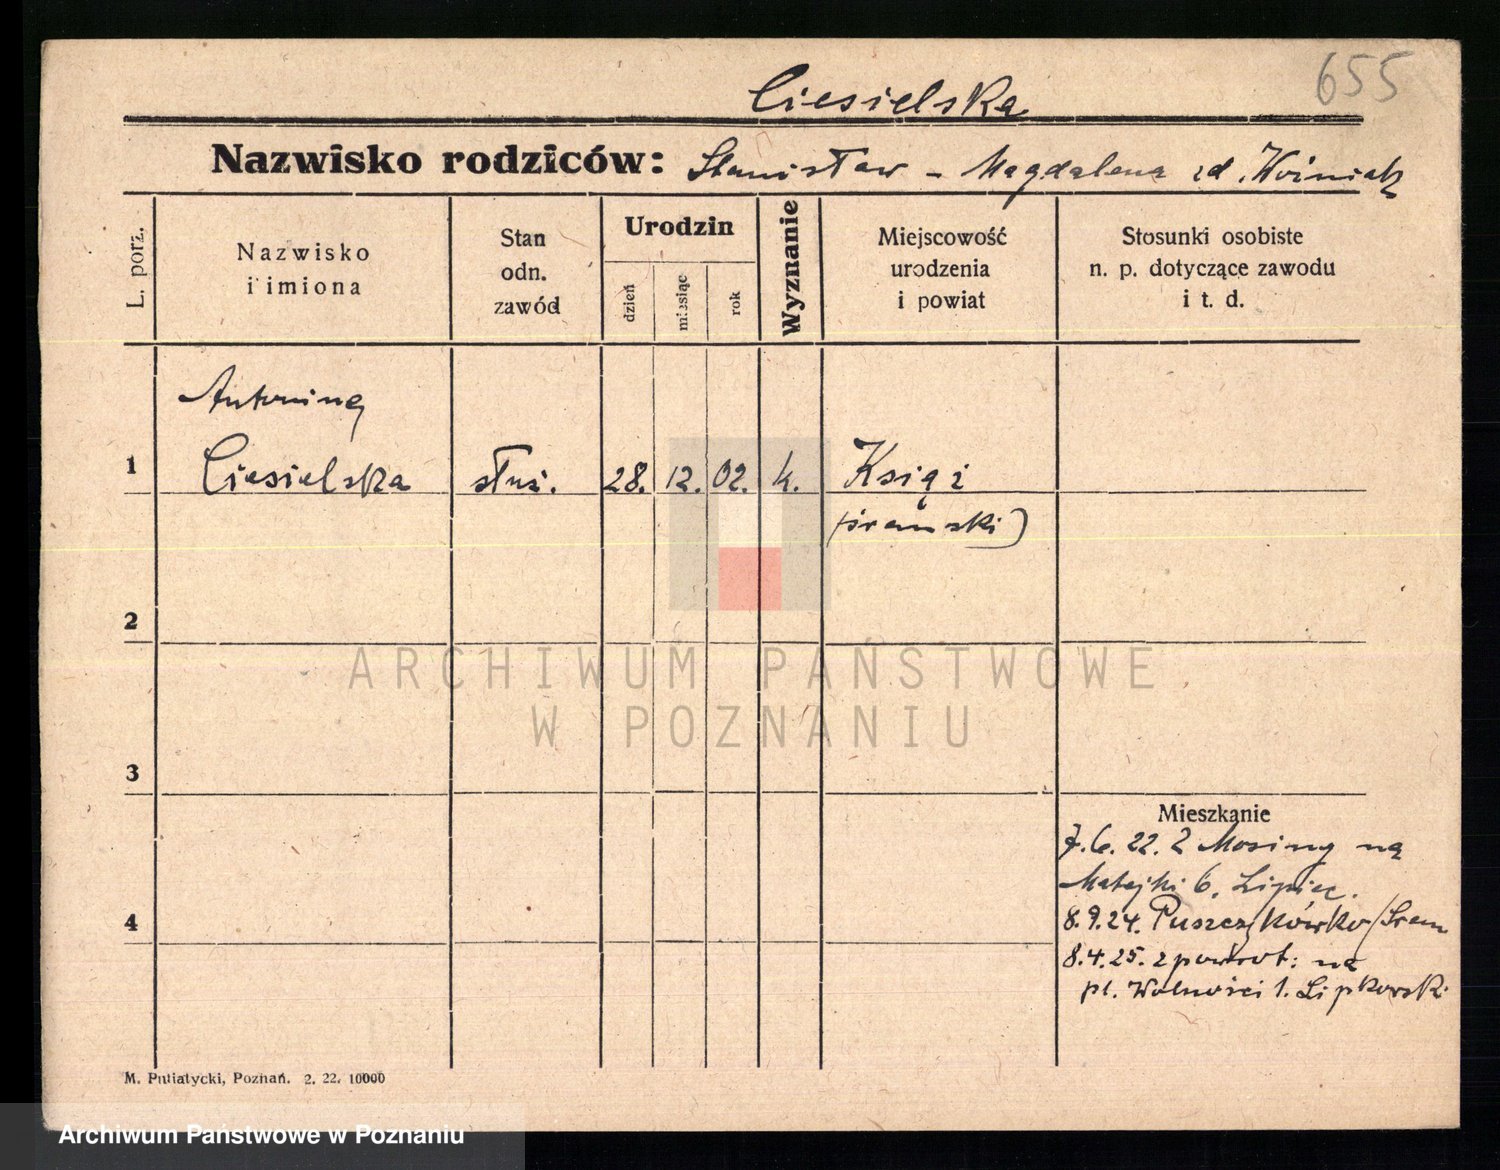 655
Ciesielska
Nazwisko rodziców: Stanisław - Magdalena zd. Woźniak
L. porz.
Nazwisko
i imiona
Stan
odn.
zawód
Urodzin
dzień
miesiąc
rok
Wyznanie
Miejscowość
urodzenia
i powiat
Stosunki osobiste
n. p. dotyczące zawodu
i t. d.
Antonina
1 Ciesielska służ. 28. 12. 02. k. Książ
(śremski)
2
ARCHIWUM PAŃSTWOWE
W POZNANIU
3
Mieszkanie
7.6.22. z Mosiny na
Matejki 6, Lipiec.
4
8.9.24. Puszczykówko/Śrem
8.4.25. z powrot: na
pl. Wolności 1. Lipkowski
M. Putiatycki, Poznań. 2. 22. 10000
Archiwum Państwowe w Poznaniu